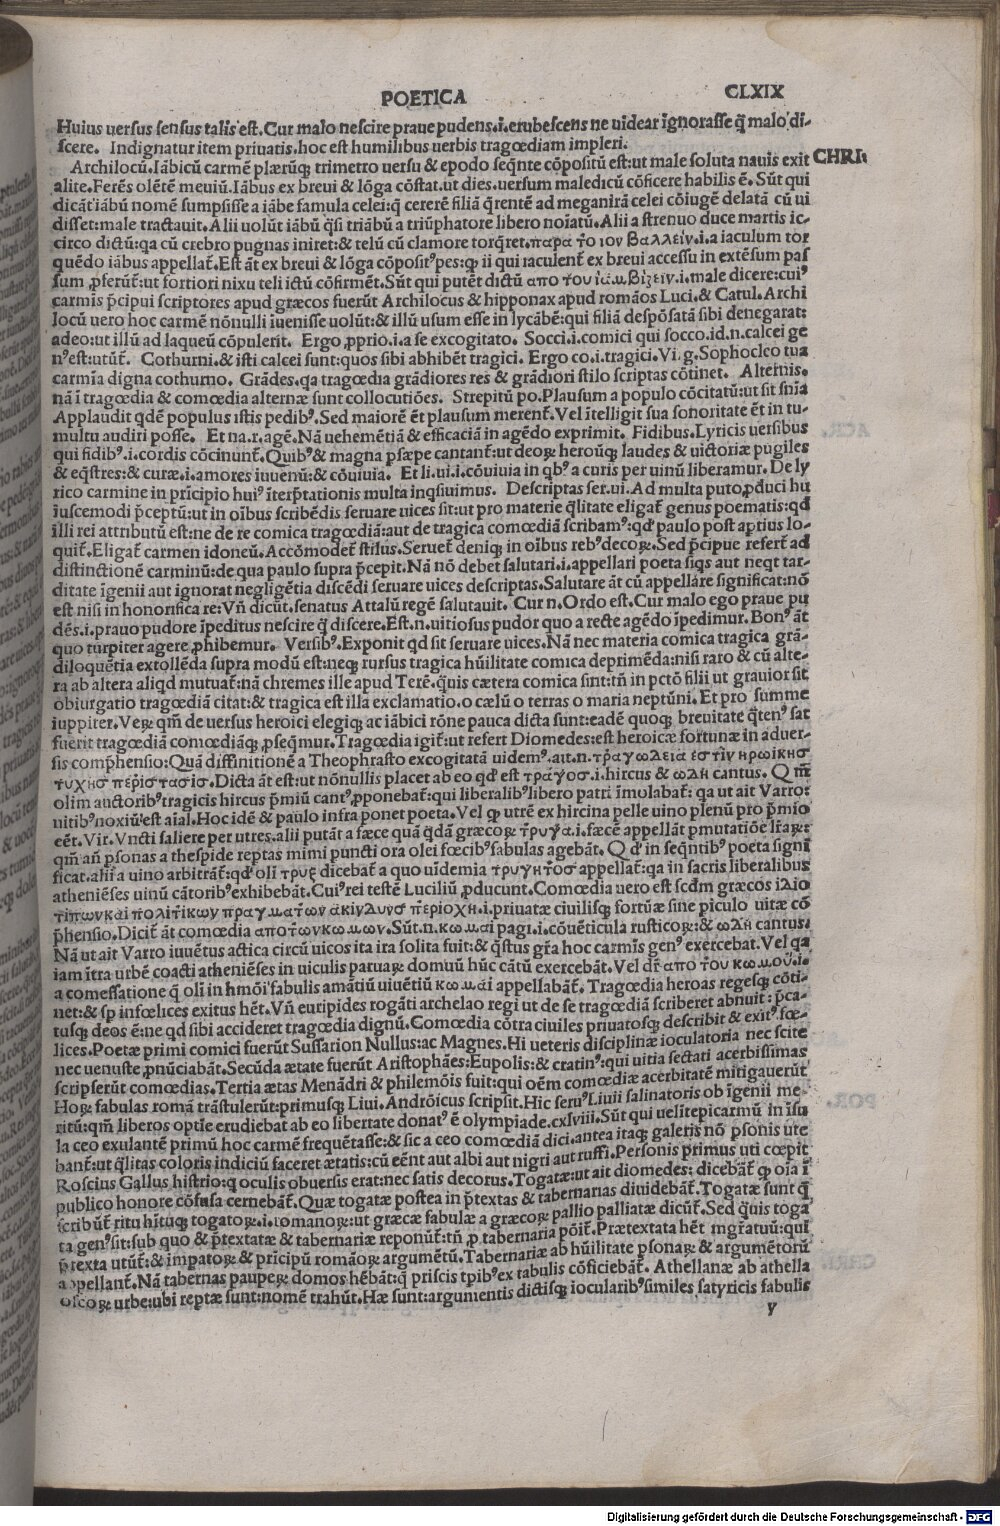 POETICA CLXIX
Huius uersus sensus talis est. Cur malo nescire praue pudens.i.erubescens ne uidear ignorasse q̃ malo di-
scere. Indignatur item priuatis.hoc est humilibus uerbis tragœdiam impleri.
Archilocũ.Iãbicũ carmẽ plærũq; trimetro uersu & epodo seqñte cõpositũ est:ut male soluta nauis exit CHRI.
alite.Ferẽs olẽtẽ meuiũ.Iãbus ex breui & lõga cõstat.ut dies.uersum maledicũ cõficere habilis ẽ. Sũt qui
dicãt iãbũ nomẽ sumpsisse a iãbe famula celei:q̃ cererẽ filiã q̃rentẽ ad meganirã celei cõiugẽ delatã cũ ui
disset:male tractauit.Alii uolũt iãbũ q̃si triãbũ a triũphatore libero noĩatũ.Alii a strenuo duce martis ic-
circo dictũ:qa cũ crebro pugnas iniret:& telũ cũ clamore torq̃ret.παρα το ιον βαλλειν.i.a iaculum tor
quẽdo iãbus appellat̃.Est ãt ex breui & lõga cõposit⁹ pes:ꝙ ii qui iaculent̃ ex breui accessu in extẽsum pas
sum ꝓferũt̃:ut fortiori nixu teli ictũ cõfirmẽt.Sũt qui putẽt dictũ απο του ιαμβιζειν.i.male dicere:cui⁹
carmis p̃cipui scriptores apud græcos fuerũt Archilocus & hipponax apud romãos Luci.& Catul.Archi
locũ uero hoc carmẽ nõnulli iuenisse uolũt:& illũ usum esse in lycãbẽ:qui filiã despõsatã sibi denegarat:
adeo:ut illũ ad laqueũ cõpulerit. Ergo ꝓprio.i.a se excogitato. Socci.i.comici qui socco.id.n.calcei ge
n⁹est:utũt̃. Cothurni.& isti calcei sunt:quos sibi abhibẽt tragici. Ergo co.i.tragici.Vi.g.Sophocleo tua
carmia digna cothurno. Grãdes.qa tragœdia grãdiores res & grãdiori stilo scriptas cõtinet. Alternis.
nã ĩ tragœdia & comœdia alternæ sunt collocutiões. Strepitũ po.Plausum a populo cõcitatũ:ut sit snĩa
Applaudit qdẽ populus istis pedib⁹.Sed maiorẽ ẽt plausum merent̃.Vel ĩtelligit sua sonoritate ẽt in tu-
multu audiri posse. Et na.r.agẽ.Nã uehemẽtiã & efficaciã in agẽdo exprimit. Fidibus.Lyricis uersibus
qui fidib⁹.i.cordis cõcinunt̃.Quib⁹& magna p̃sæpe cantant̃:ut deoꝝ heroũq; laudes & uictoriæ pugiles
& eq̃stres:& curæ.i.amores iuuenũ:& cõuiuia. Et li.ui.i.cõuiuia in qb⁹a curis per uinũ liberamur.De ly
rico carmine in prĩcipio hui⁹ ĩterp̃tationis multa inq̃siuimus. Descriptas ser.ui.Ad multa puto ꝓduci hu
iuscemodi p̃ceptũ:ut in oĩbus scribẽdis seruare uices sit:ut pro materie q̃litate eligat̃ genus poematis:qd
illi rei attributũ est:ne de re comica tragœdiã:aut de tragica comœdiã scribam⁹:qd paulo post aptius lo-
quit̃.Eligat̃ carmen idoneũ.Accõmodet̃ stilus.Seruet̃ deniq; in oĩbus reb⁹decoꝝ.Sed p̃cipue refert̃ ad
distinctionẽ carminũ:de qua paulo supra p̃cepit.Nã nõ debet salutari.i.appellari poeta siqs aut neqt tar-
ditate ĩgenii aut ignorat negligẽtia discẽdi seruare uices descriptas.Salutare ãt cũ appellare significat:nõ
est nisi in honorifica re:Vñ dicũt.senatus Attalũ regẽ salutauit. Cur n.Ordo est.Cur malo ego praue pu
dẽs.i.prauo pudore ĩpeditus nescire q̃ discere.Est.n.uitiosus pudor quo a recte agẽdo ĩpedimur.Bon⁹ ãt
quo turpiter agere ꝓhibemur. Versib⁹.Exponit qd sit seruare uices.Nã nec materia comica tragica grã-
diloquẽtia extollẽda supra modũ est:neq; rursus tragica hũilitate comica deprimẽda:nisi raro & cũ alte-
ra ab altera aliqd mutuat̃:nã chremes ille apud Terẽ.q̃uis cætera comica sint:tñ in pctõ filii ut grauior sit
obiurgatio tragœdiã citat:& tragica est illa exclamatio.o cælũ o terras o maria neptũni.Et pro summe
iuppiter.Veꝝ qm̃ de uersus heroici elegiq; ac iãbici rõne pauca dicta sunt:eadẽ quoq; breuitate q̃ten⁹ sat
fuerit tragœdiã comœdiãq; ꝓseq̃mur.Tragœdia igit̃:ut refert Diomedes:est heroicæ fortunæ in aduer-
sis comp̃hensio:Quã diffinitionẽ a Theophrasto excogitatã uidem⁹.ait.n.τραγωδεια εστιν ηρωικησ
τυχησ περιστασισ.Dicta ãt est:ut nõnullis placet ab eo qd est τραγοσ.i.hircus & ωδη cantus. Qm̃
olim auctorib⁹tragicis hircus p̃miũ cant⁹ ꝓponebat̃:qui liberalib⁹libero patri ĩmolabat̃:qa ut ait Varro:
uitib⁹noxiũ est aĩal.Hoc idẽ & paulo infra ponet poeta.Vel ꝙ utrẽ ex hircina pelle uino plenũ pro p̃mio
eẽt.Vir.Vncti saliere per utres.alii putãt a fæce quã q̃dã græcoꝝ τρυγα.i.fæcẽ appellãt pmutatiõe lr̃aꝝ:
qm̃ añ psonas a thespide reptas mimi puncti ora olei fœcib⁹fabulas agebãt.Qd in seqñtib⁹poeta signi
ficat.alii a uino arbitrãt̃:qd oli τρυξ dicebat̃ a quo uidemia τρυγητοσ appellat̃:qa in sacris liberalibus
atheniẽses uinũ cãtorib⁹exhibebãt.Cui⁹rei testẽ Luciliũ ꝓducunt.Comœdia uero est scdm græcos ιδιο
τιπωνκαι πολιτικων πραγματων ακινδυνοσ περιοχη.i.priuatæ ciuilisq; fortũæ sine piculo uitæ cõ
p̃hensio.Dicit̃ ãt comœdia αποτωνκωμων.Sũt.n.κωμαι pagi.i.cõuẽticula rusticoꝝ:& ωδη cantus.
Nã ut ait Varro iuuẽtus actica circũ uicos ita ira solita fuit:& q̃stus gr̃a hoc carmĩs gen⁹ exercebat.Vel qa
iam ĩtra urbẽ coacti atheniẽses in uiculis paruaꝝ domuũ hũc cãtũ exercebãt.Vel dr̃ απο του κωμου.i.
a comessatione q̃ oli in hmõi fabulis amãtiũ uiuẽtiũ κωμαι appellabãt̃.Tragœdia heroas regesq; cõti-
net:& sp infœlices exitus hẽt.Vñ euripides rogãti archelao regi ut de se tragœdiã scriberet abnuit:p̃ca-
tusq; deos ẽ:ne qd sibi accideret tragœdia dignũ.Comœdia cõtra ciuiles priuatosq; describit & exit⁹ fœ-
lices.Poetæ primi comici fuerũt Sussarion Nullus:ac Magnes.Hi ueteris disciplinæ ioculatoria nec scite
nec uenuste ꝓnũciabãt.Secũda ætate fuerũt Aristophães:Eupolis:& cratin⁹:qui uitia sectati acerbissimas
scripserũt comœdias.Tertia ætas Menãdri & philemõis fuit:qui oẽm comœdiæ acerbitatẽ mitigauerũt
Hoꝝ fabulas romã trãstulerũt:primusq; Liui.Andrõicus scripsit.Hic seru⁹Liuii salinatoris ob ĩgenii me-
ritũ:qm̃ liberos optie erudiebat ab eo libertate donat⁹ ẽ olympiade.cxlviii.Sũt qui uelitepicarmũ in ĩsu
la ceo exulantẽ primũ hoc carmẽ frequẽtasse:& sic a ceo comœdiã dici.antea itaq; galeris nõ psonis ute
bant̃:ut q̃litas coloris indiciũ faceret ætatis:cũ eẽnt aut albi aut nigri aut ruffi.Personis p̃rimus uti cœpit
Roscius Gallus histrio:q oculis obuersis erat:nec satis decorus.Togatæ:ut ait diomedes: dicebãt̃ ꝙ oĩa ĩ
publico honore cõfusa cernebãt̃.Quæ togatæ postea in p̃textas & tabernarias diuidebãt̃.Togatæ sunt q̃
scribũt̃ ritu hĩtũq; togatoꝝ.i.romanoꝝ:ut græcæ fabulæ a græcoꝝ pallio palliatæ dicũt̃.Sed q̃uis toga
ta gen⁹sit:sub quo & p̃textatæ & tabernariæ reponũt̃:tñ ꝓ tabernaria põit̃.Prætextata hẽt mgr̃atuũ:qui
p̃texta utũt̃:& impatoꝝ & prĩcipũ romãoꝝ argumẽtũ.Tabernariæ ab hũilitate psonaꝝ & argumẽtorũ
appellant̃.Nã tabernas paupeꝝ domos hẽbãt:q̃ priscis tpib⁹ex tabulis cõficiebãt̃. Athellanæ ab athella
oscoꝝ urbe:ubi reptæ sunt:nomẽ trahũt.Hæ sunt:argumentis dictisq; iocularib⁹similes satyricis fabulis
y
Digitalisierung gefördert durch die Deutsche Forschungsgemeinschaft - DFG